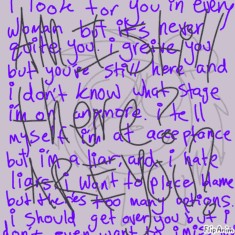 I look for you in every
woman but it's never
quite you. i greive you
but you're still here and
i don't know what stage
im on anymore. i tell
myself im at acceptance
but im a liar. and i hate
liars. i want to place blame
but theres too many options.
i should get over you but i
don't even want to. i miss
AM I STILL
Here?
ARE YOU?
FlipAnim